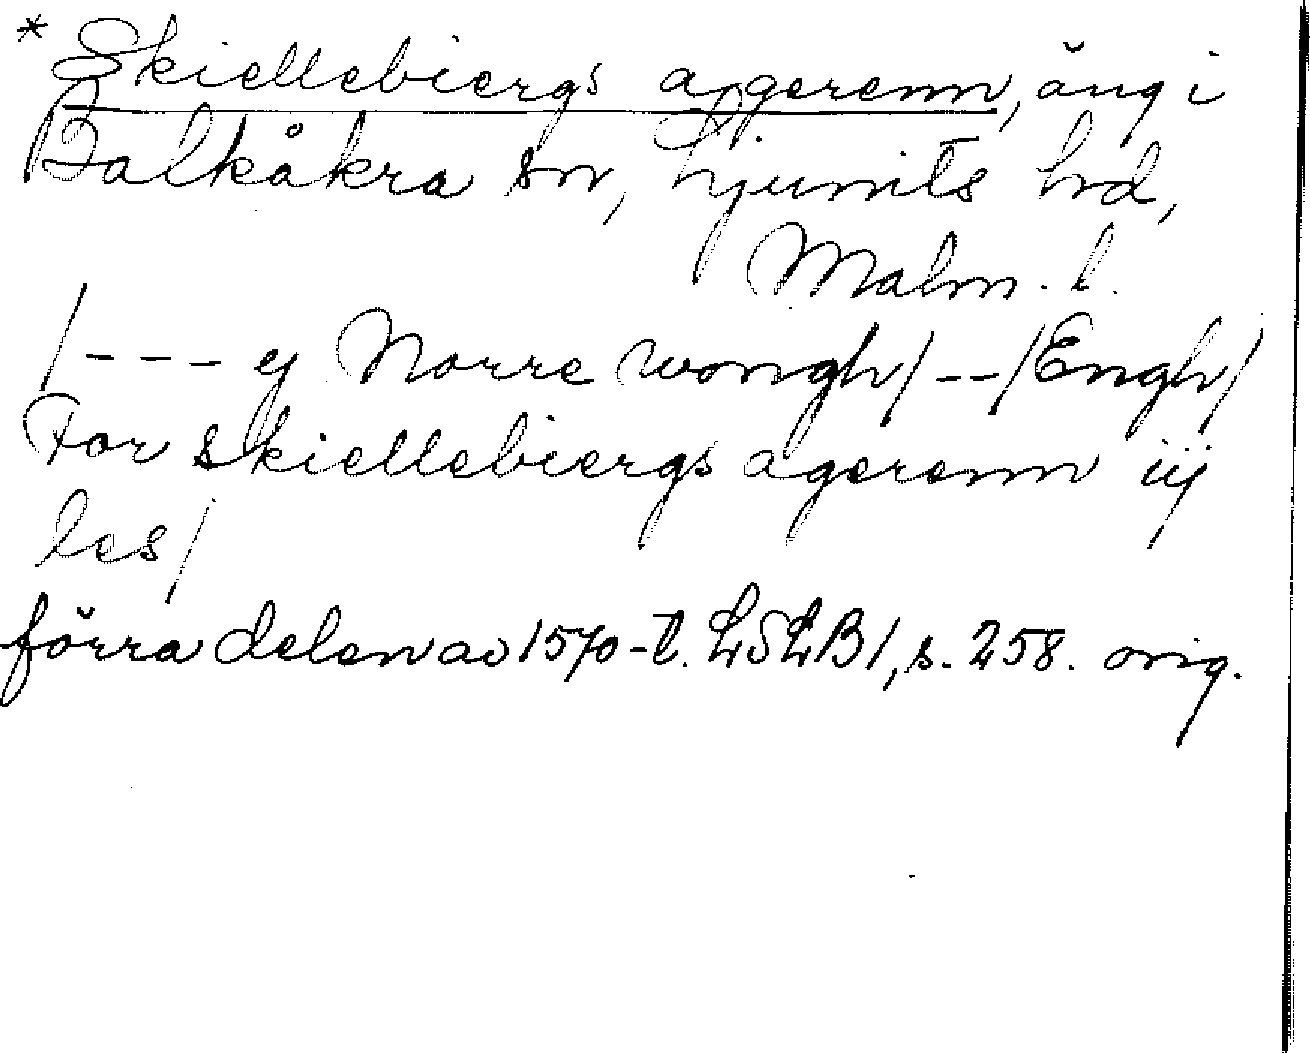 * Skiellebiergs agerenn, äng i
Balkåkra sn, Ljunits hd,
Malm. l.
/--- ej Norre wongh/--/Engh/
For skiellebiergs agerenn iij
les/
förra delen av 1570-t. LSLB 1, s. 258. orig.